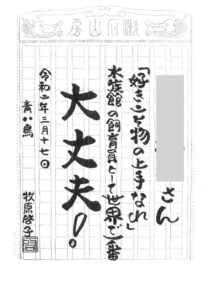 漱石山房
さん
「好きこそ物の上手なれ」
水族館の飼育員として世界で一番
大丈夫!
令和二年三月十七日
青い鳥 牧原啓子